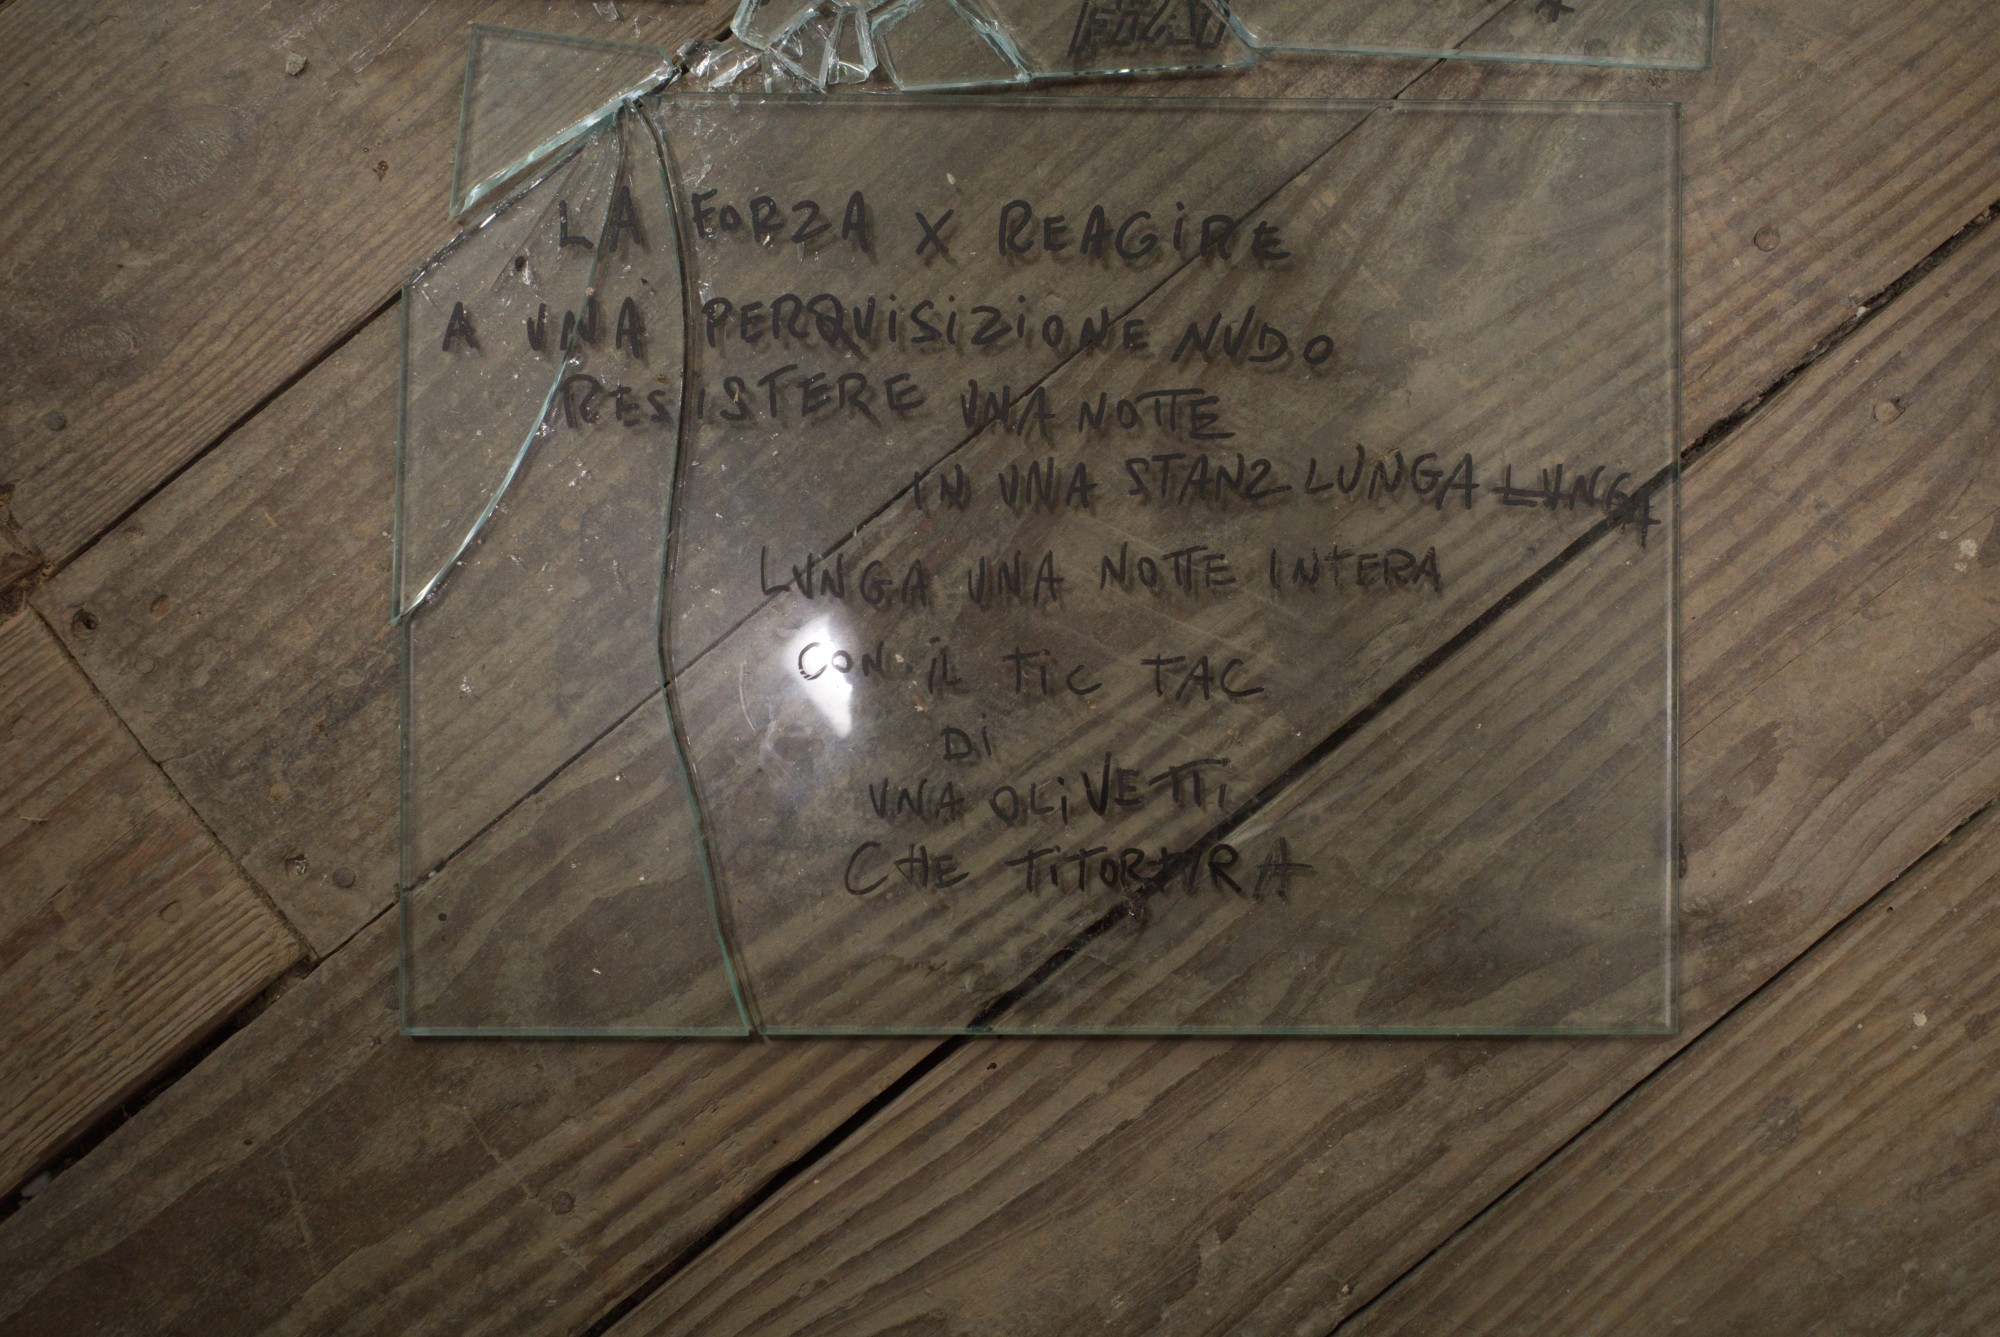 LA FORZA X REAGiRE
A UNA PERQUiSiZiONE NUDO
RESISTERE UNA NOTTE
IN UNA STANZ LUNGA LUNGA
LUNGA UNA NOTTE INTERA
CON iL TiC TAC
Di
UNA OLiVETTi
CHE TiTORTURA